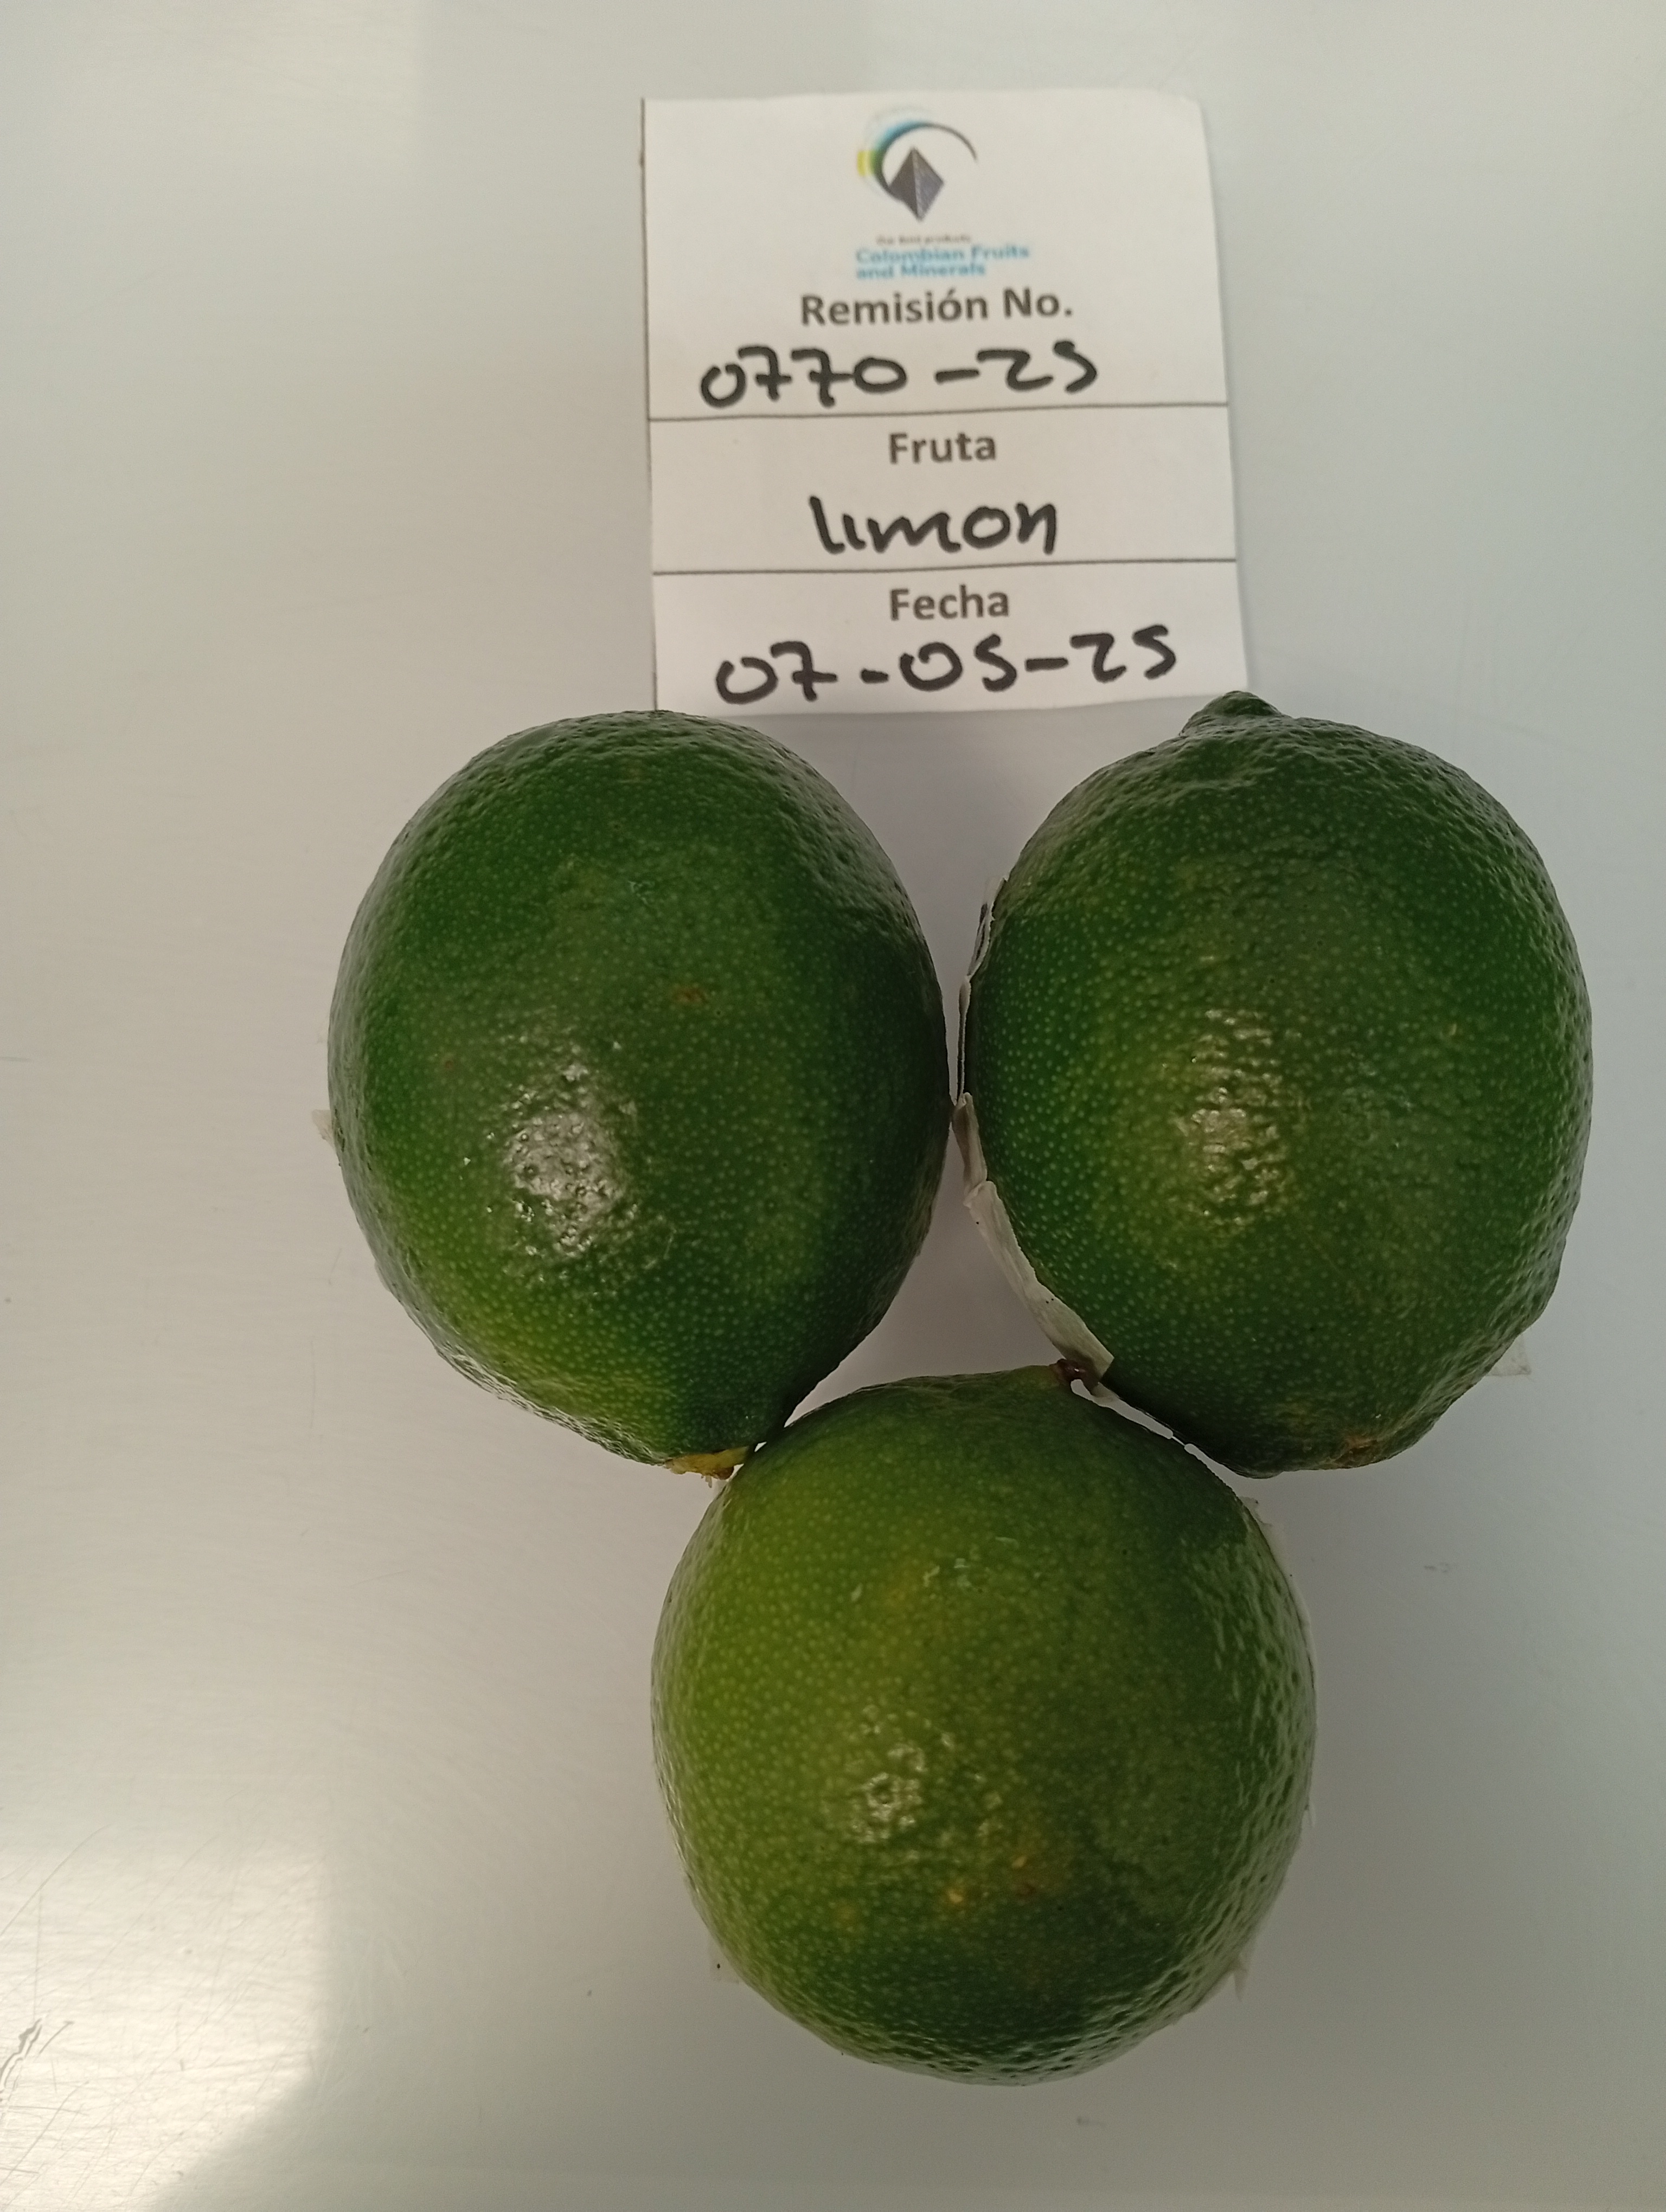 Our best products
Colombian Fruits
and Minerals
Remisión No.
0770-25
Fruta
limon
Fecha
07-05-25